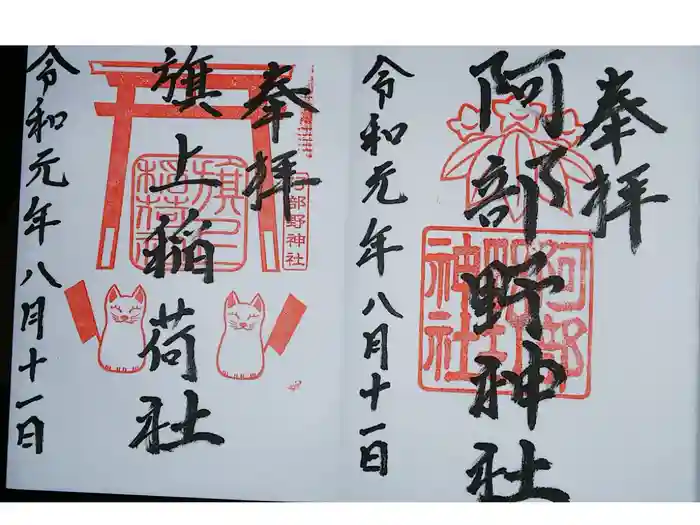 奉拝
阿部野神社
令和元年八月十一日
阿部野神社
奉拝
旗上稲荷社
令和元年八月十一日
阿部野神社